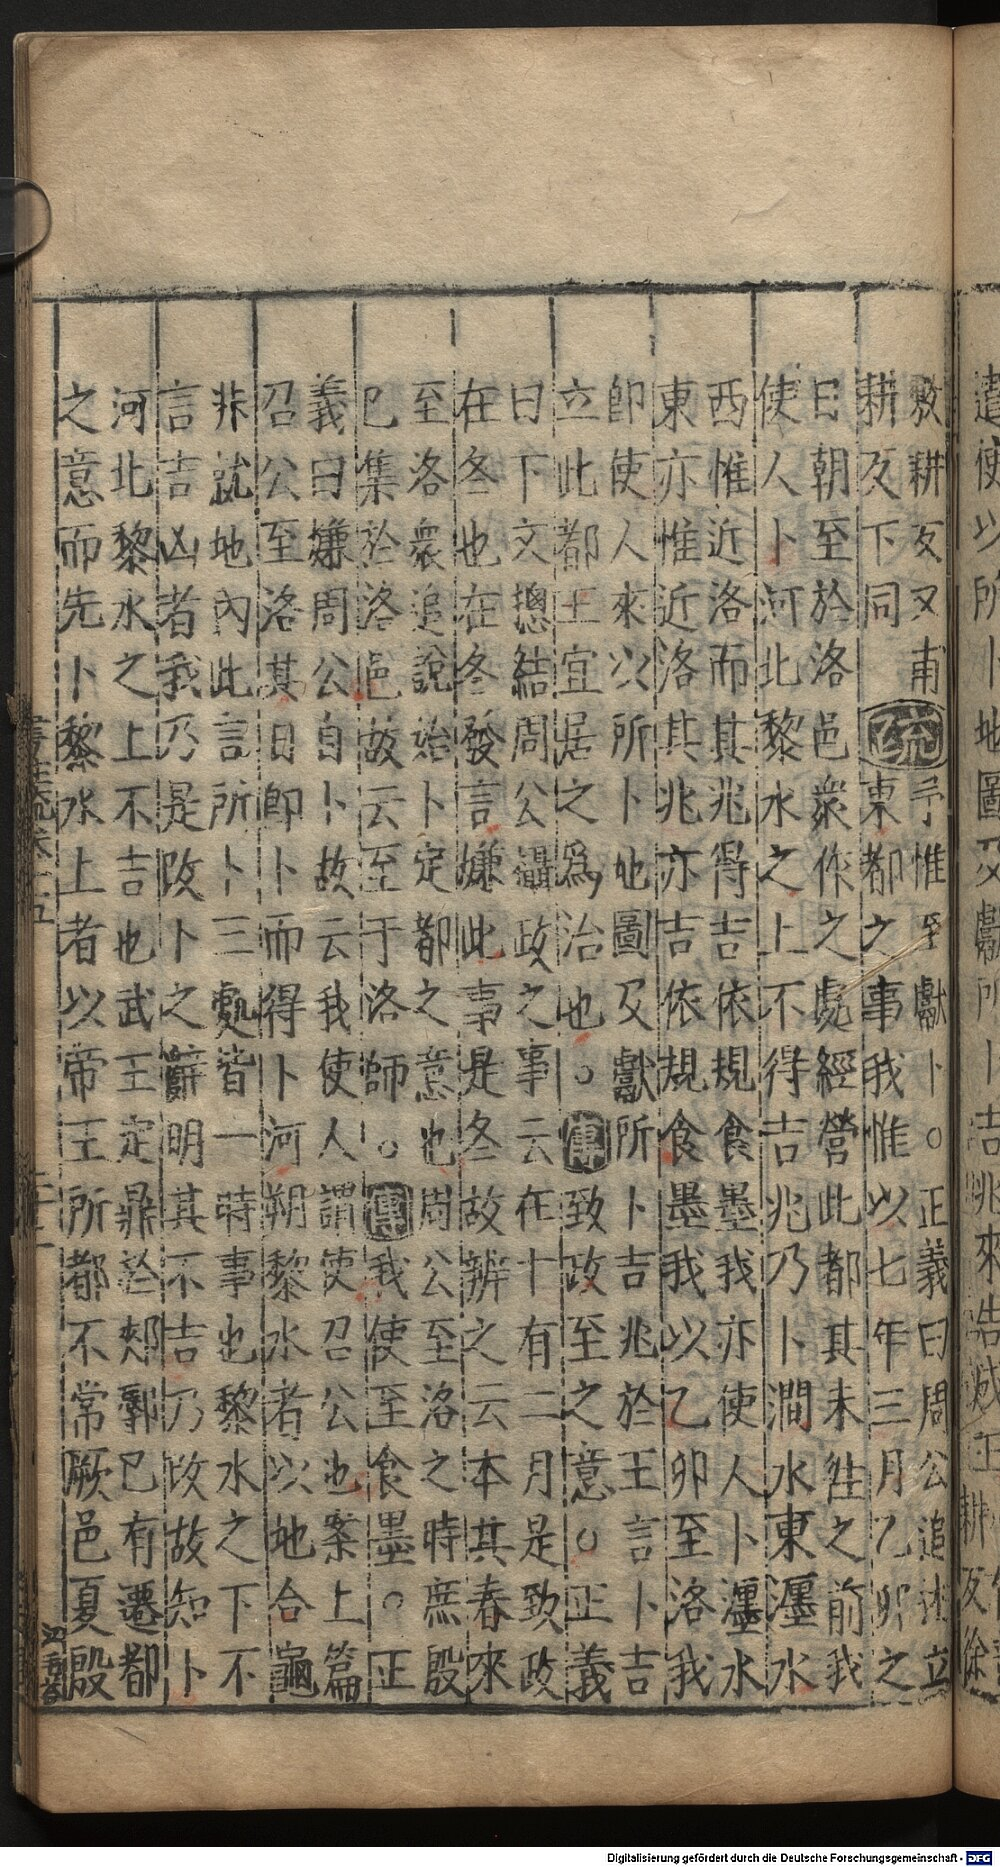 遣使以所卜地圖及獻所卜吉兆來告成王
耕反徐
敷耕反又甫
耕反下同疏予惟至獻卜○正義曰周公追述立
東都之事我惟以七年三月乙卯之
日朝至於洛邑衆作之處經營此都其未往之前我
使人卜河北黎水之上不得吉兆乃卜澗水東瀍水
西惟近洛而其兆得吉依規食墨我亦使人卜瀍水
東亦惟近洛其兆亦吉依規食墨我以乙卯至洛我
卽使人來以所卜地圖及獻所卜吉兆於王言卜吉
立此都王宜居之爲治也○傳致政至之意○正義
曰下文摠結周公攝政之事云在十有二月是致政
在冬也在冬發言嫌此事是冬故辨之云本其春來
至洛衆追說始卜定都之意也周公至洛之時庶殷
已集於洛邑故云至于洛師○傳我使至食墨○正
義曰嫌周公自卜故云我使人謂使召公也案上篇
召公至洛其日卽卜而得卜河朔黎水者以地合龜
非就地內此言所卜三處皆一時事也黎水之下不
言吉凶者我乃是改卜之辭明其不吉乃改故知卜
河北黎水之上不吉也武王定鼎於郟鄏已有遷都
之意而先卜黎水上者以帝王所都不常厥邑夏殷
書注疏卷十五
二十一
Digitalisierung gefördert durch die Deutsche Forschungsgemeinschaft - DFG